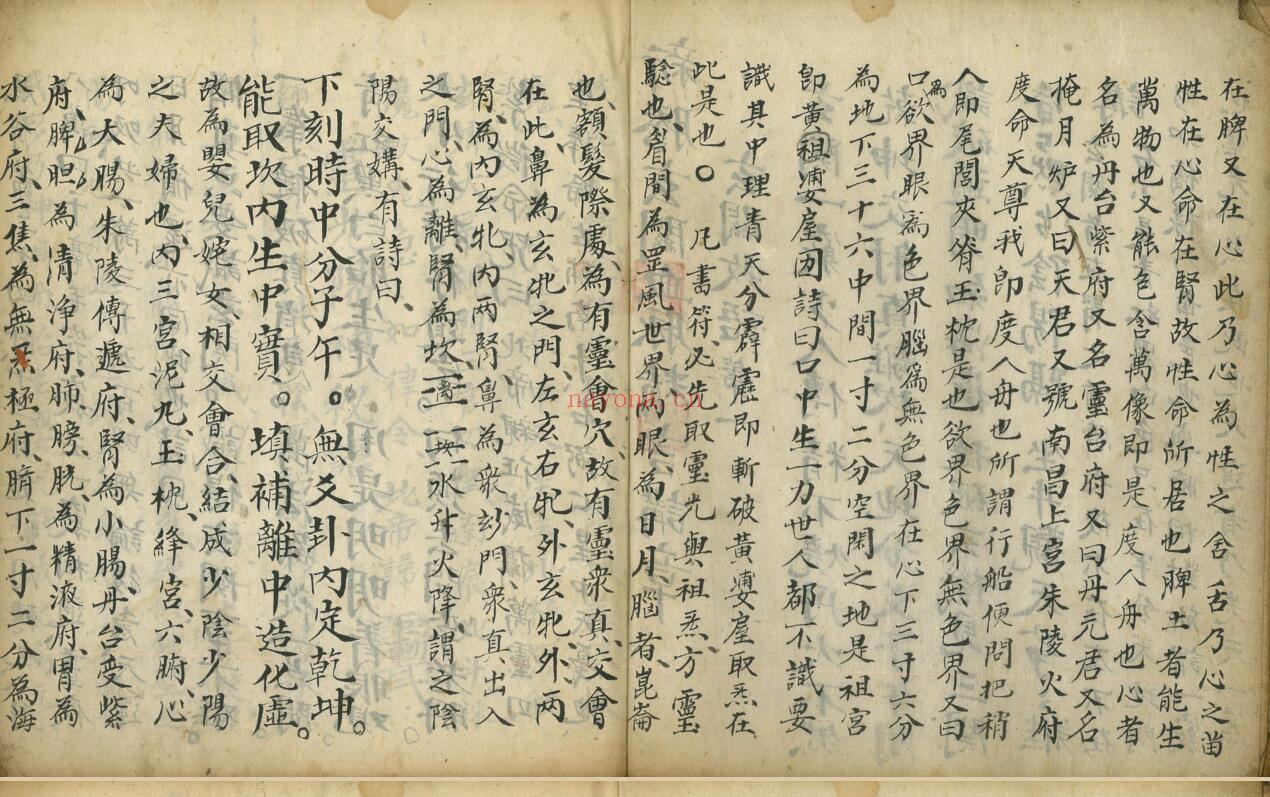 在脾又在心此乃心為性之舍舌乃心之苗
性在心命在腎故性命所居也脾土者能生
萬物也又能色含萬像即是度人舟也心者
名為丹台紫府又名靈台府又曰丹元君又名
掩月炉又曰天君又號南昌上宮朱陵火府
度命天尊我即度人舟也所謂行船便問把稍
人即尾閭夾脊玉枕是也欲界色界無色界又曰
口為欲界眼為色界腦為無色界在心下三寸六分
為地下三十六中間一寸二分空閑之地是祖宮
即黃祖婆屋囝詩曰口中生一力世人都不識要
識其中理青天分霹靂即斬破黃婆屋取炁在
此是也〇 凡書符必先取靈光與祖炁、方靈
驗也、眉間為罡風世界、兩眼、為日月、腦者、崑崙
也、額髮際處、為有靈會穴、故有靈衆真、交會
在此、鼻為玄牝之門、左玄右牝、外玄牝、外、兩
腎、為內玄牝、內兩腎、鼻為衆玅門、衆真出入
之門、心為離、腎為坎、離坎水升火降、謂之陰
陽交媾、有詩曰、
下刻時中分子午。無爻卦內定乾坤。
能取坎內生中實。填補離中造化虛。
故為嬰兒姹女、相交會合、結成少陰少陽
之夫婦也、內三宮、泥丸、玉枕、絳宮、六腑、心
為大腸、朱陵傳遞府、腎為小腸、丹台受紫
府、脾胆為清浄府、肺、膀胱、為精液府、胃為
水谷府、三焦、為無極府、臍下一寸二分為海
nayona.cn